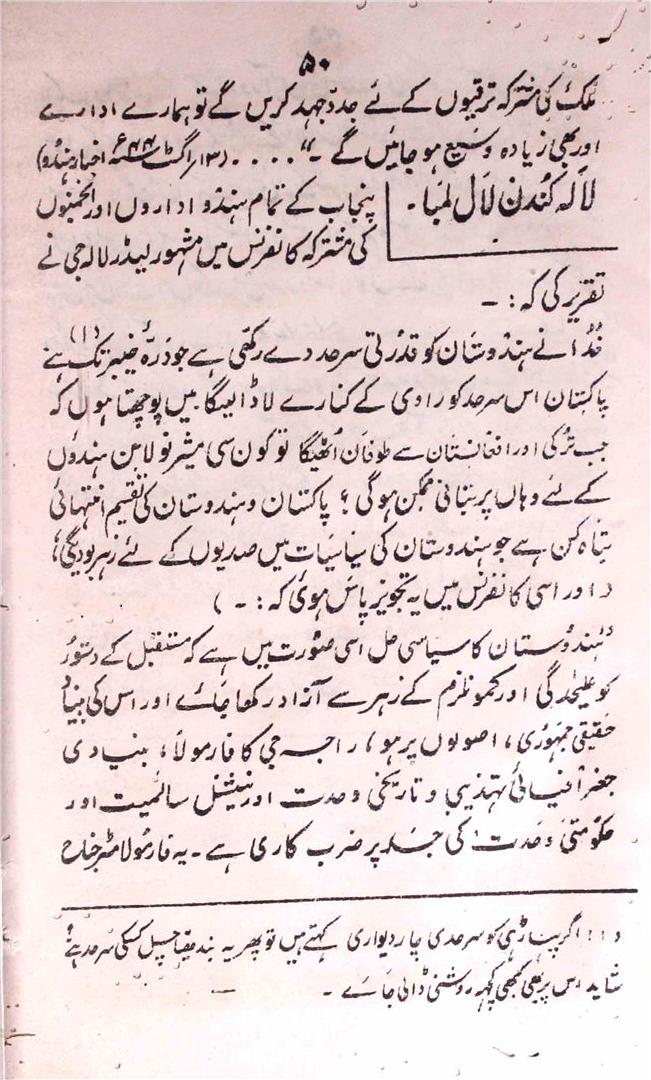 ۵۰
ملک کی مشترکہ ترقیوں کے لئے جدوجہد کریں گے تو ہمارے ادارے
اور بھی زیادہ وسیع ہو جائیں گے ۔" .... (۱۳/اگست ۴۴ء اخبار ہندو)
لالہ کندن لال لمبا ۔
پنجاب کے تمام ہندو اداروں اور انجمنوں
کی مشترکہ کانفرنس میں مشہور لیڈر لالہ جی نے
تقریر کی کہ :۔
خُدا نے ہندوستان کو قدرتی سرحد دے رکھی ہے جو درّہ خیبر تک ہے (۱)
پاکستان اس سرحد کو راوی کے کنارے لا ڈالیگا میں پوچھتا ہوں کہ
جب ترکی اور افغانستان سے طوفان اُٹھیگا تو کون سی میثر نولائن ہندوں
کے لئے وہاں پر بنانی ممکن ہوگی ؟ پاکستان و ہندوستان کی تقسیم انتہائی
تباہ کن ہے جو ہندوستان کی سیاسیات میں صدیوں کے لئے زہر بودیگی،،
(اور اسی کانفرنس میں یہ تجویز پاس ہوئی کہ :۔)
"ہندوستان کا سیاسی حل اسی صورت میں ہے کہ مستقبل کے دستور
کو علیحدگی اور کمونلزم کے زہر سے آزاد رکھا جائے اور اس کی بنیاد
حقیقی جمہوری، اصولوں پر ہو، راجہ جی کا فارمولا، بنیادی
جغرافیائی تہذیبی و تاریخی وحدت اور نیشنل سالمیت اور
حکومتی وحدت کی جڑ پر ضرب کاری ہے ۔ یہ فارمولا مسٹر جناح
(۱) اگر پہاڑ ہی کو سرحدی چار دیواری کہتے ہیں تو پھر یہ بندھیاچل کسکی سرحد ہے
شاید اس پر بھی کبھی کچھ روشنی ڈالی جائے ۔